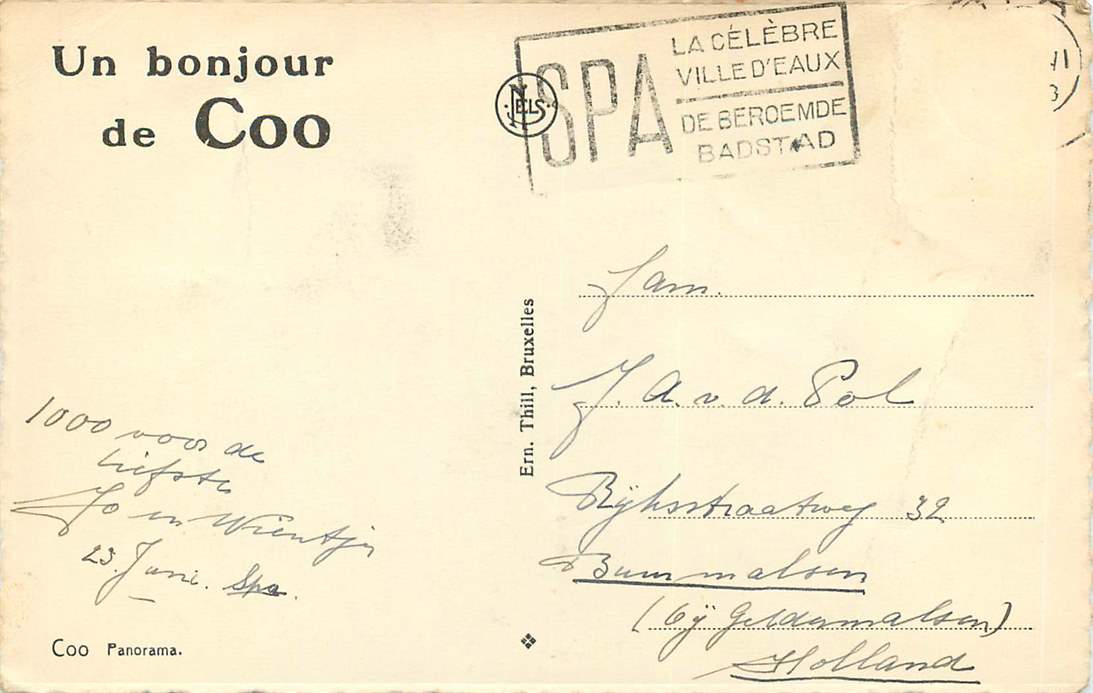 Un bonjour
de Coo
SPA
LA CÉLÈBRE
VILLE D'EAUX
DE BEROEMDE
BADSTAD
NELS
VI
3
Ern. Thill, Bruxelles
1000 voor de
liefste
Jo en Wientje
23 Juni. Spa.
Fam.
J. A. v. d. Pol
Rijksstraatweg 32
Buurmalsen
(bij Geldermalsen)
Holland
Coo Panorama.